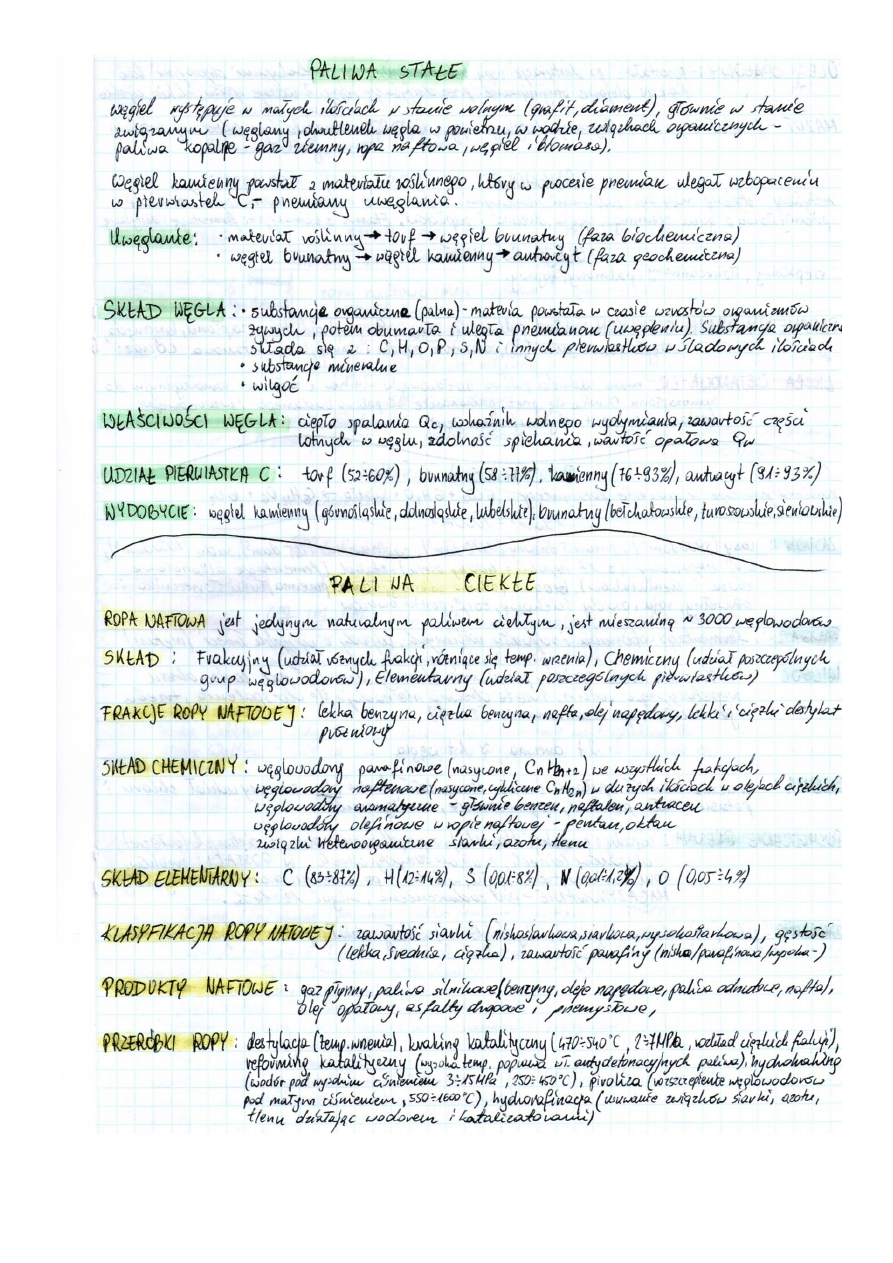 PALIWA STAŁE
węgiel występuje w małych ilościach w stanie wolnym (grafit, diament), głównie w stanie
związanym (węglany, dwutlenek węgla w powietrzu, w wodzie, związkach organicznych -
paliwa kopalne - gaz ziemny, ropa naftowa, węgiel i biomasa).
Węgiel kamienny powstał z materiału roślinnego, który w procesie przemian ulegał wzbogaceniu
w pierwiastek C, - przemiany uwęglania.
Uwęglanie: • materiał roślinny → torf → węgiel brunatny (faza biochemiczna)
• węgiel brunatny → węgiel kamienny → antracyt (faza geochemiczna)
SKŁAD WĘGLA: • substancje organiczne (palna) - materia powstała w czasie wzrostów organizmów
żywych, potem obumarła i uległa przemianom (uwęgleniu). Substancja organiczna
składa się z: C, H, O, P, S, N i innych pierwiastków w śladowych ilościach
• substancje mineralne
• wilgoć
WŁAŚCIWOŚCI WĘGLA: ciepło spalania Qc, wskaźnik wolnego wydymania, zawartość części
lotnych w węglu, zdolność spiekania, wartość opałowa Qw
UDZIAŁ PIERWIASTKA C: torf (52÷60%), brunatny (58÷77%), kamienny (76÷93%), antracyt (91÷93%)
WYDOBYCIE: węgiel kamienny (górnośląskie, dolnośląskie, lubelskie), brunatny (bełchatowskie, turoszowskie, sieniawskie)
PALIWA CIEKŁE
ROPA NAFTOWA jest jedynym naturalnym paliwem ciekłym, jest mieszaniną ~ 3000 węglowodorów
SKŁAD: Frakcyjny (udział różnych frakcji, różniące się temp. wrzenia), Chemiczny (udział poszczególnych
grup węglowodorów), Elementarny (udział poszczególnych pierwiastków)
FRAKCJE ROPY NAFTOWEJ: lekka benzyna, ciężka benzyna, nafta, olej napędowy, lekki i ciężki destylat
próżniowy
SKŁAD CHEMICZNY: węglowodory parafinowe (nasycone, CnH2n+2) we wszystkich frakcjach,
węglowodory naftenowe (nasycone, cykliczne CnH2n) w dużych ilościach w olejach ciężkich,
węglowodory aromatyczne - głównie benzen, naftalen, antracen
węglowodory olefinowe w ropie naftowej - pentan, oktan
związki heteroorganiczne siarki, azotu, tlenu
SKŁAD ELEMENTARNY: C (83÷87%), H (12÷14%), S (0,01÷8%), N (0,01÷1,2%), O (0,05÷4%)
KLASYFIKACJA ROPY NATOWEJ: zawartość siarki (niskosiarkowa, siarkowa, wysokosiarkowa), gęstość
(lekka, średnia, ciężka), zawartość parafiny (niska/parafinowa/wysoka-)
PRODUKTY NAFTOWE: gaz płynny, paliwa silnikowe (benzyny, oleje napędowe, paliwa odrzutowe, nafta),
olej opałowy, asfalty drogowe i przemysłowe,
PRZERÓBKI ROPY: destylacja (temp. wrzenia), kraking katalityczny (470÷540°C, 2÷7MPa, rozkład ciężkich frakcji),
reforming katalityczny (wysoka temp. poprawa wł. antydetonacyjnych paliwa), hydrokraking
(wodór pod wysokim ciśnieniem 3÷15MPa, 250÷450°C), piroliza (rozszczepienie węglowodorów
pod małym ciśnieniem, 550÷1600°C), hydrorafinacja (usuwanie związków siarki, azotu,
tlenu działając wodorem i katalizatorami)